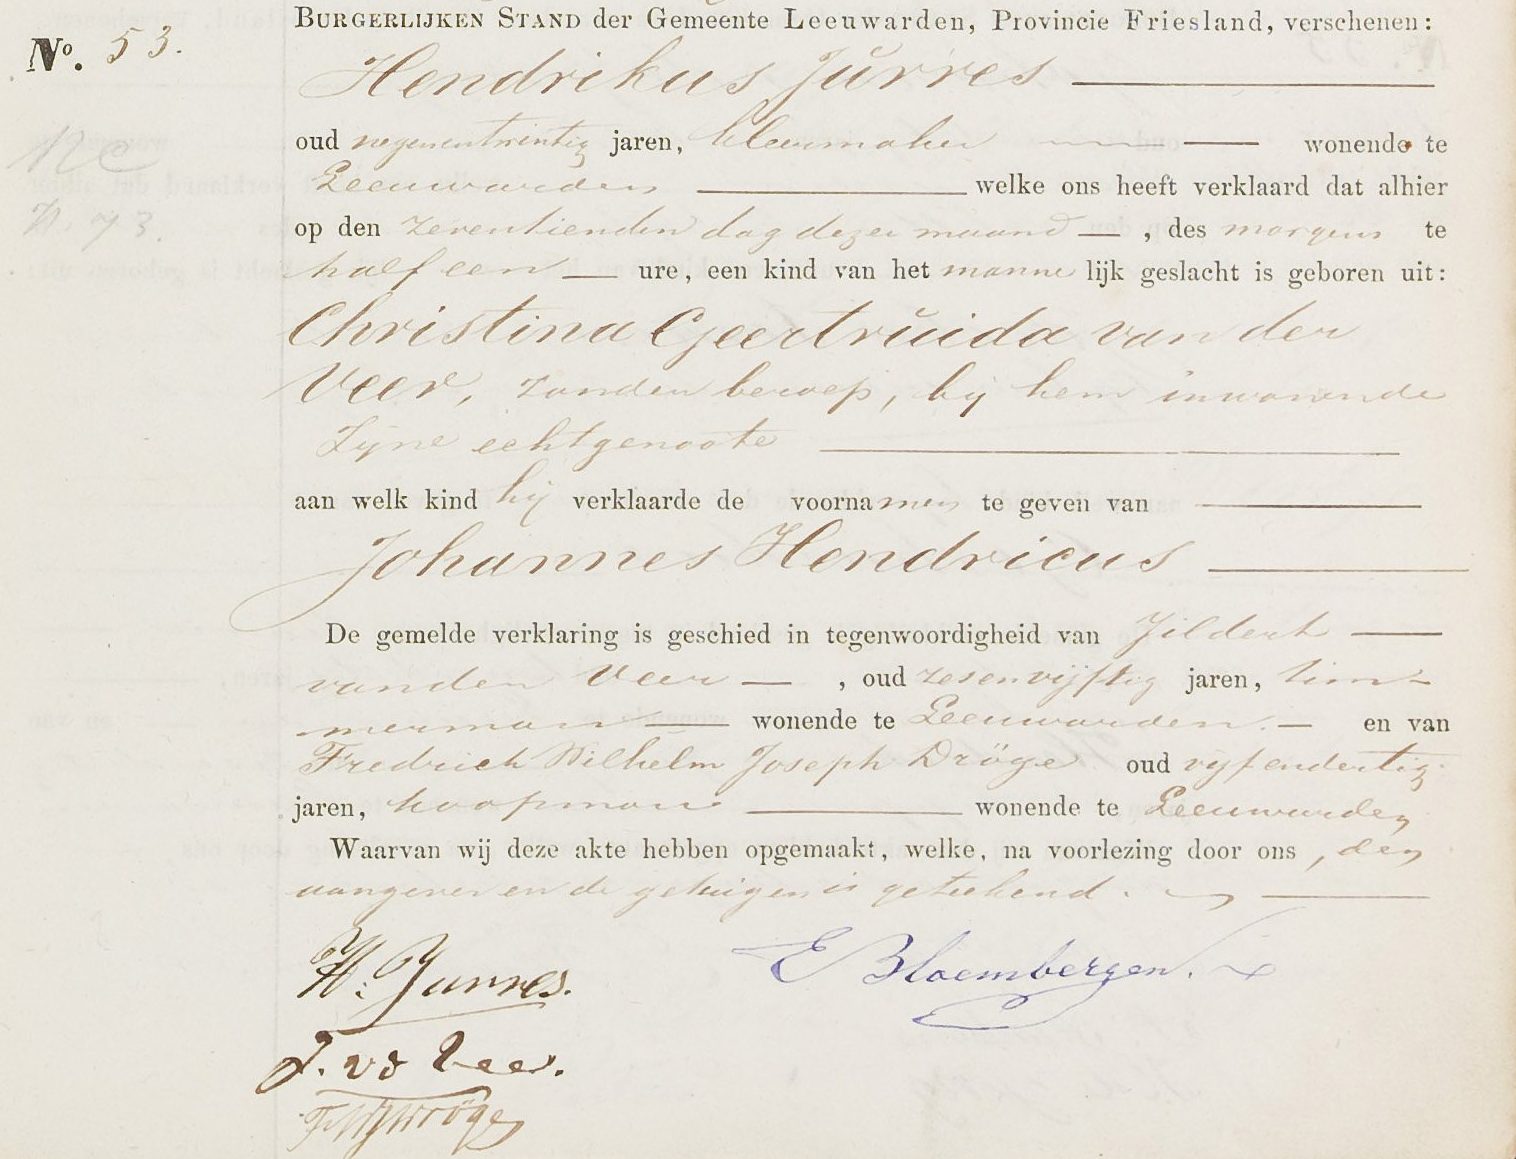 BURGERLIJKEN STAND der Gemeente Leeuwarden, Provincie Friesland, verschenen:
No. 53.
Hendrikus Jurres
oud negenentwintig jaren, kleermaker wonende te
Leeuwarden welke ons heeft verklaard dat alhier
op den zeventienden dag dezer maand, des morgens te
half een ure, een kind van het mannelijk geslacht is geboren uit:
Christina Geertruida van der
Veer, zonder beroep, bij hem inwonende
Zijne echtgenoote
aan welk kind hij verklaarde de voornamen te geven van
Johannes Hendricus
De gemelde verklaring is geschied in tegenwoordigheid van Jildert
van der Veer, oud zesenvijftig jaren, tim-
merman wonende te Leeuwarden. en van
Fredrich Wilhelm Joseph Dröge oud vijfendertig
jaren, koopman wonende te Leeuwarden
Waarvan wij deze akte hebben opgemaakt, welke, na voorlezing door ons, den
aangever en de getuigen is geteekend.
H: Jurres. E Bloembergen.
J. vd Veer.
Dröge